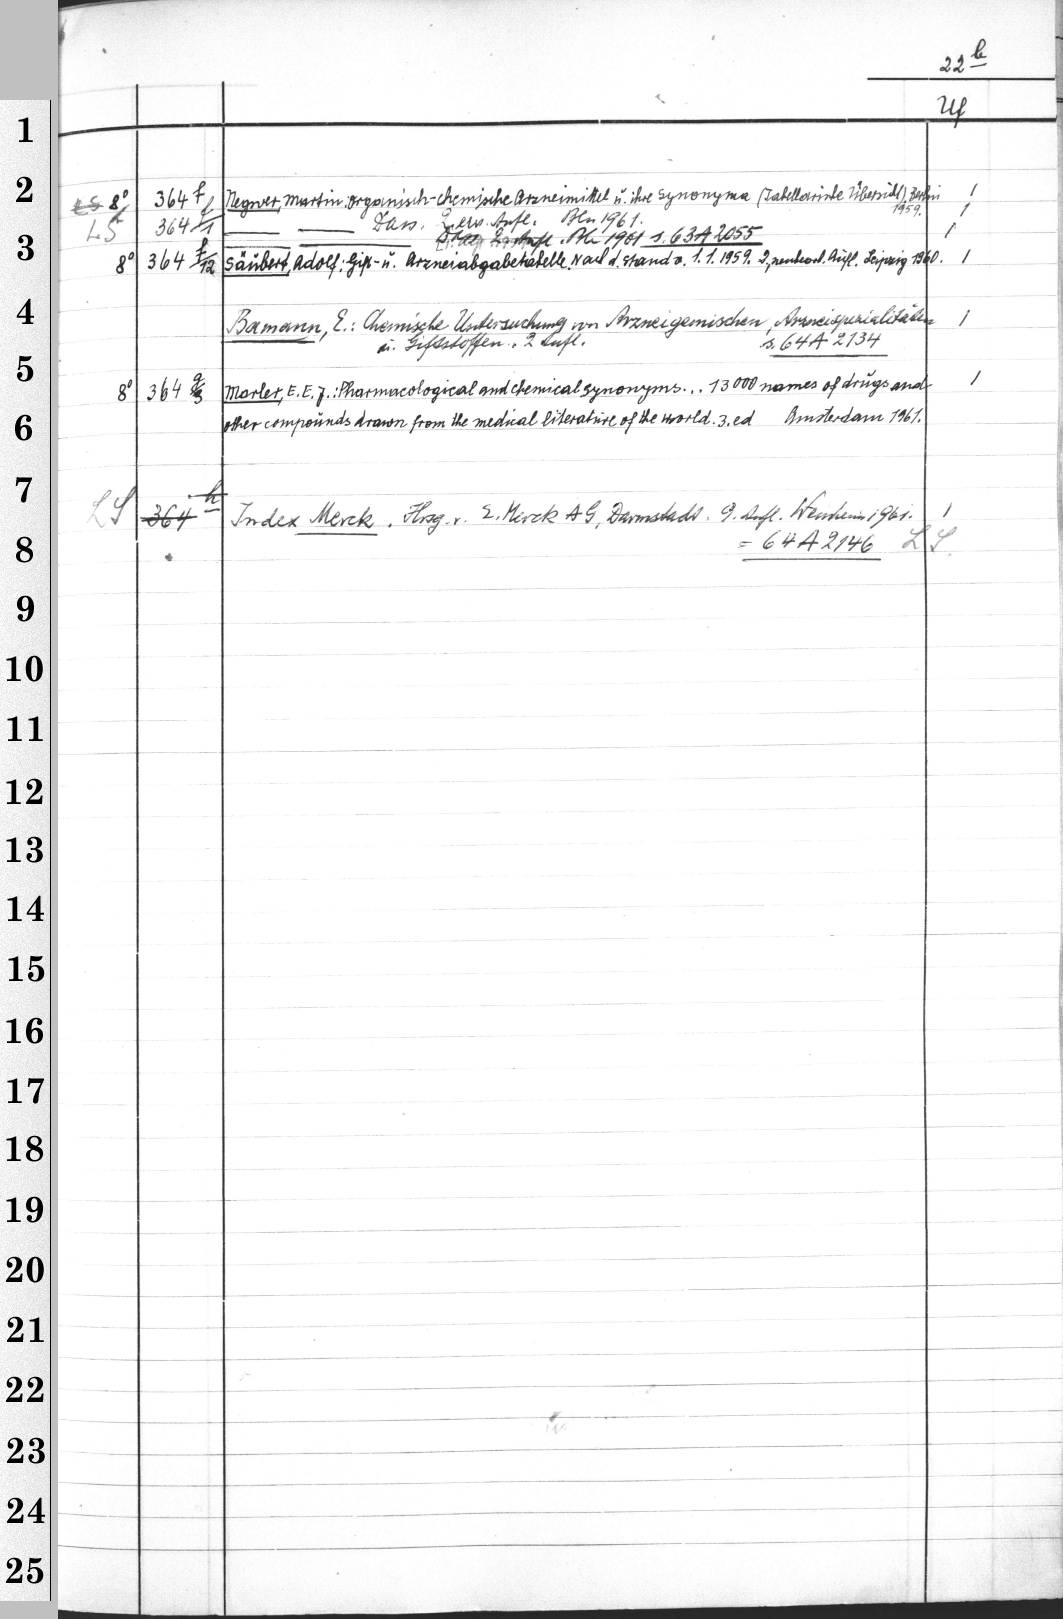 22 b
Uf
1
2
L S 8° 364 f Negwer, Martin: Organisch-chemische Arzneimittel u. ihre Synonyma (Tabellarische Übersicht). Berlin 1959. 1
LS 364 f/1 Dass. 2. erw. Aufl. Bln 1961. 1
2. Aufl. Bln 1961 s. 63A2055 1
3
8° 364 f/12 Säubert, Adolf: Gift- u. Arzneiabgabetabelle. Nach d. Stand v. 1.1.1959. 2, neubearb. Aufl. Leipzig 1960. 1
4
Bamann, E.: Chemische Untersuchung von Arzneigemischen, Arzneispezialitäten 1
u. Giftstoffen. 2 Aufl. s. 64A2134
5
8° 364 g/3 Marler, E. E. J.: Pharmacological and chemical synonyms... 13000 names of drugs and 1
6
other compounds drawn from the medical literature of the world. 3. ed Amsterdam 1961.
7
LS 364 h Index Merck. Hrsg. v. E. Merck AG, Darmstadt. 9. Aufl. Weinheim 1961. 1
8
= 64A2146 LS.
9
10
11
12
13
14
15
16
17
18
19
20
21
22
23
24
25